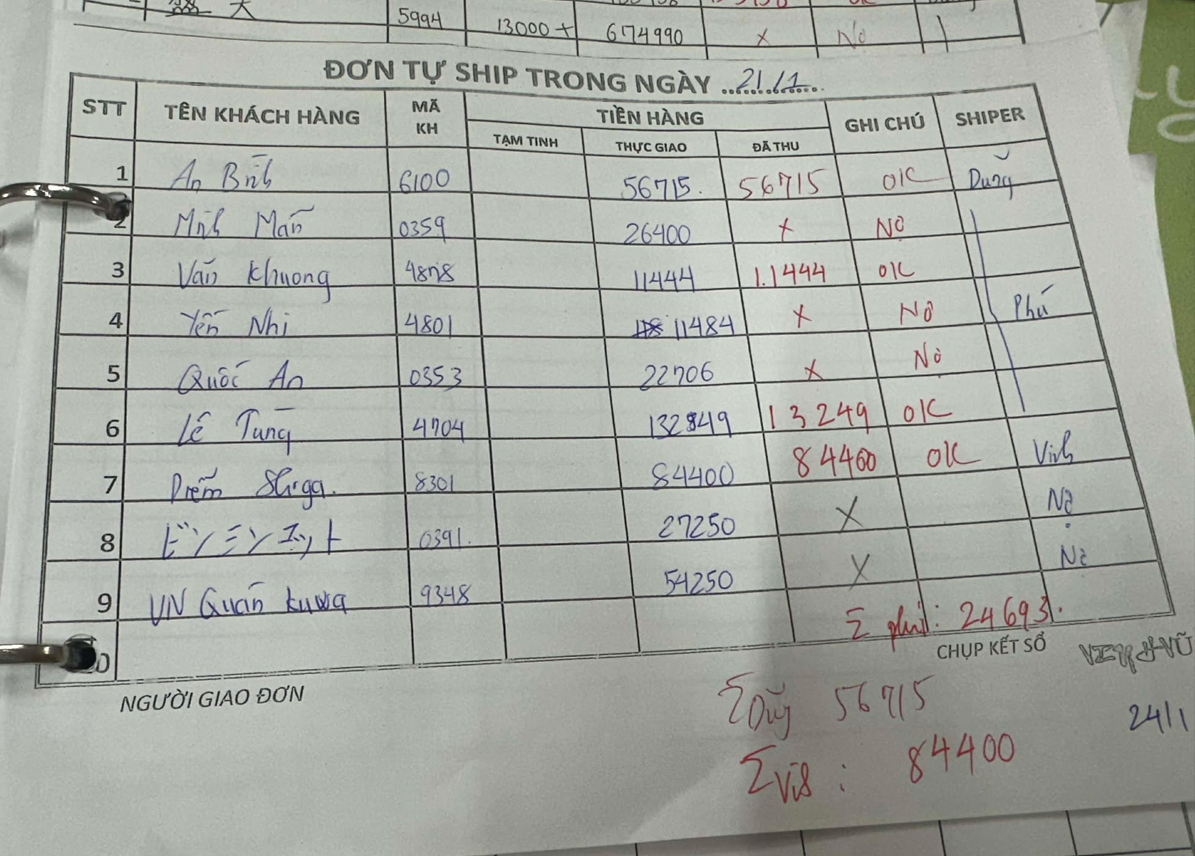 大
5994 13000+ 674990 x Nợ
ĐƠN TỰ SHIP TRONG NGÀY ..21/1..
STT TÊN KHÁCH HÀNG MÃ KH TIỀN HÀNG GHI CHÚ SHIPER
TẠM TINH THỰC GIAO ĐÃ THU
1 An Bình 6100 56715. 56715 OK Dũng
2 Mẫn 0359 26400 x Nợ
3 Văn Khuong 11444 11444 OK
4 Yến Nhi 4801 11484 x Nợ Phú
5 Quốc An 0353 22706 x Nợ
6 Lê Tùng 4704 13249 OK
7 Diễm Shiga. 8301 84400 84400 OK Vinh
8 ビンミンエット 0391. 27250 X Nợ
9 VN Quán kuwa 9348 54250 X Nợ
Σ phú: 24693.
CHỤP KẾT SỔ
NGƯỜI GIAO ĐƠN
Σ Dũng 56715
24/1
Σ Vinh : 84400